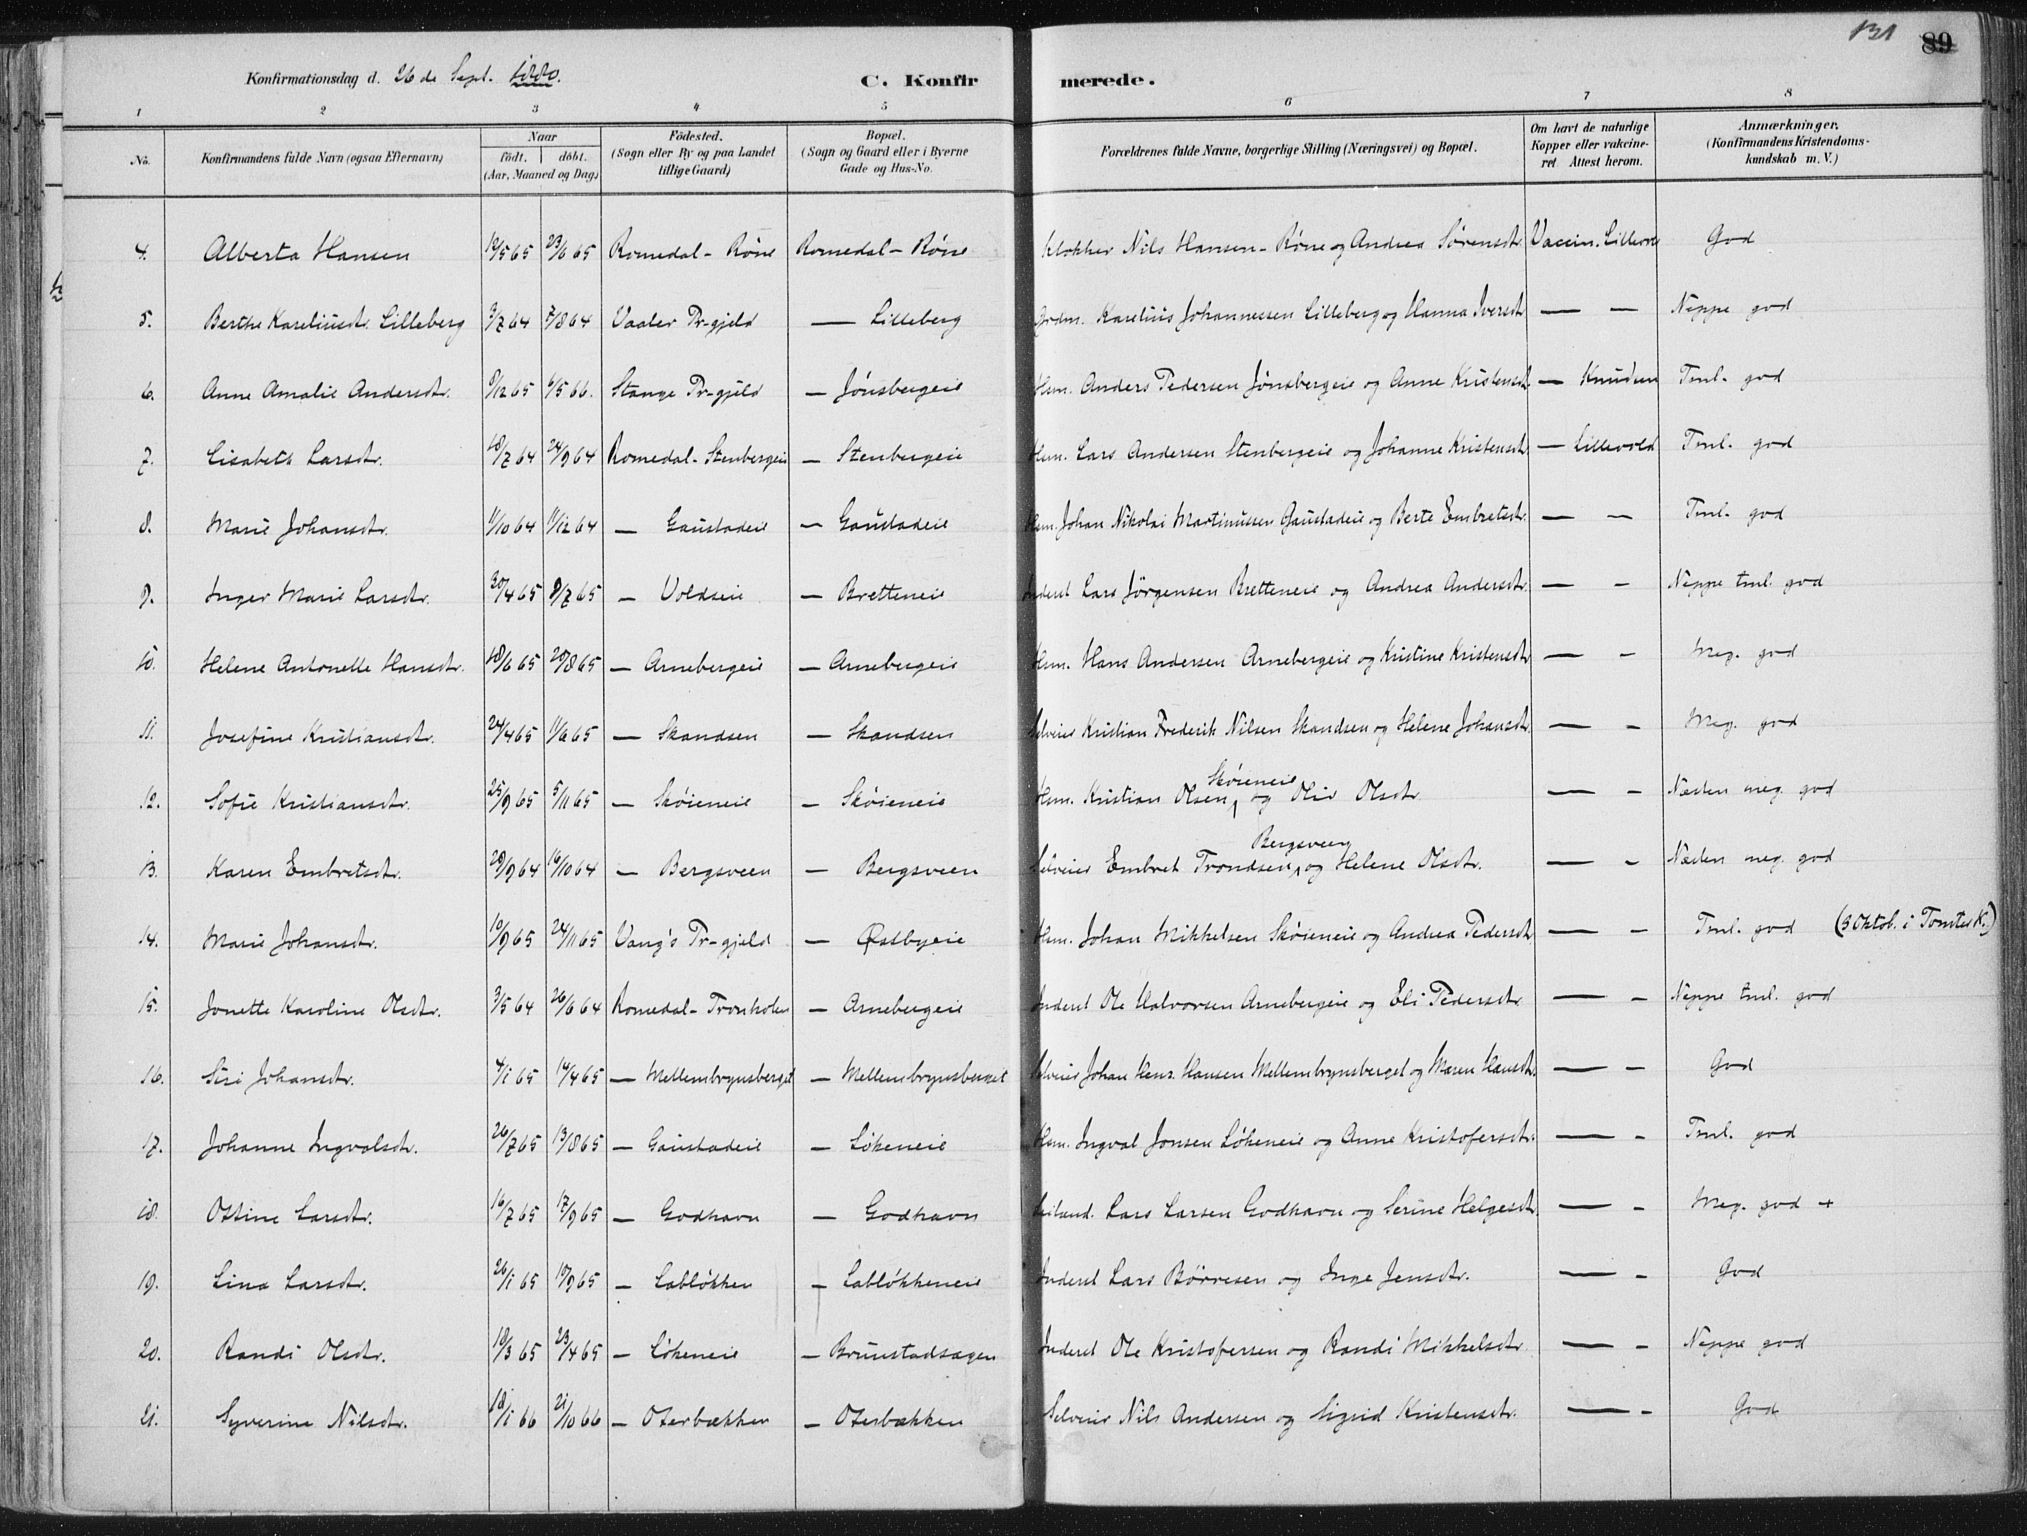 131 89
Konfirmationsdag d. 26de Sept. 1880. C. Konfirmerede.
1 2 3 4 5 6 7 8
No. Konfirmandens fulde Navn (ogsaa Efternavn) Naar født. døbt. (Aar, Maaned og Dag) Fødested. (Sogn eller By og paa Landet tillige Gaard) Bopæl. (Sogn og Gaard eller i Byerne Gade og Hus-No. Forældrenes fulde Navne, borgerlige Stilling (Næringsvei) og Bopæl. Om havt de naturlige Kopper eller vakcineret Attest herom. Anmærkninger. (Konfirmandens Kristendomskundskab m. V.)
4. Alberta Hansen 12/5 65 23/6 65 Romedal - Røne Romedal - Røne Klokker Nils Hansen - Røne og Andrea Sørensdtr. Vaccin. God
5. Berthe Kareliusdtr. Lilleberg 3/7 64 7/8 64 Vaaler Pr-gjeld — Lilleberg Grdm. Karelius Johannessen Lilleberg og Hanna Iversdtr. — — Neppe god
6. Anne Amalie Andersdtr. 9/12 65 6/5 66. Stange Pr-gjeld — Jønsbergeie Hsm. Anders Pedersen Jønsbergeie og Anne Kristensdtr. — Knudsen Tml. god
7. Lisabeth Larsdtr. 18/7 64 24/9 64 Romedal - Stenbergeie — Stenbergeie Hsm. Lars Andersen Stenbergeie og Johanne Kristensdtr. — Lillevold Tml. god
8. Marie Johansdtr. 11/10 64 11/12 64 — Gaustadeie — Gaustadeie Hsm. Johan Nikolai Martinussen Gaustadeie og Berte Embretsdtr. — — Tml. god
9. Inger Marie Larsdtr. 30/4 65 9/7 65 — Voldseie — Bretteneie Inderst Lars Jørgensen Bretteneie og Andrea Andersdtr. — — Neppe tml. god
10. Helene Antonette Hansdtr. 18/6 65 20/8 65 — Arnebergeie — Arnebergeie Hsm. Hans Andersen Arnebergeie og Kristine Kristensdtr. — — Meg. god
11. Josefine Kristiansdtr. 24/4 65 11/6 65 — Skandsen — Skandsen Selveier Kristian Frederik Nilsen Skandsen og Helene Johansdtr. — — Meg. god
12. Sofie Kristiansdtr. 25/9 65 5/11 65 — Skøieneie — Skøieneie Hsm. Kristian Olsen Skøieneie og Olia Olsdtr. — — Næsten meg. god
13. Karen Embretsdtr. 29/9 64 16/10 64 — Bergsveen — Bergsveen Selveier Embret Trondsen Bergsveen og Helene Olsdtr. — — Næsten meg. god
14. Marie Johansdtr. 10/9 65 24/11 65 Vang's Pr-gjeld — Østbyeie Hsm. Johan Mikkelsen Skøieneie og Andrea Pedersdtr. — — Tml. god (3 Oktob. i Tomter K.)
15. Jonette Karoline Olsdtr. 3/5 64 26/6 64 Romedal - Tronholen — Arnebergeie Inderst Ole Halvorsen Arnebergeie og Eli Pedersdtr. — — Neppe tml. god
16. Siri Johansdtr. 4/1 65 14/4 65 — Mellembrynsberget — Mellembrynsberget Selveier Johan Henr. Hansen Mellembrynsberget og Maren Hansdtr. — — God
17. Johanne Ingvalsdtr. 26/7 65 13/8 65 — Gaustadeie — Løkeneie Hsm. Ingval Jonsen Løkeneie og Anne Kristofersdtr. — — Tml. god
18. Ottine Larsdtr. 16/7 65 17/9 65 — Godhavn — Godhavn Lars Larsen Godhavn og Serine Helgesdtr. — — Meg. god +
19. Lina Larsdtr. 26/1 65 17/9 65 — Labløkken — Labløkkeneie Inderst Lars Børresen og Inge Jensdtr. — — God
20. Randi Olsdtr. 18/3 65 23/4 65 — Løkeneie — Brunstadsagen Inderst Ole Kristofersen og Randi Mikkelsdtr. — — Neppe god
21. Syverine Nilsdtr. 18/1 66 21/10 66 — Oterbækken — Oterbækken Selveier Nils Andersen og Sigrid Kristensdtr. — — God